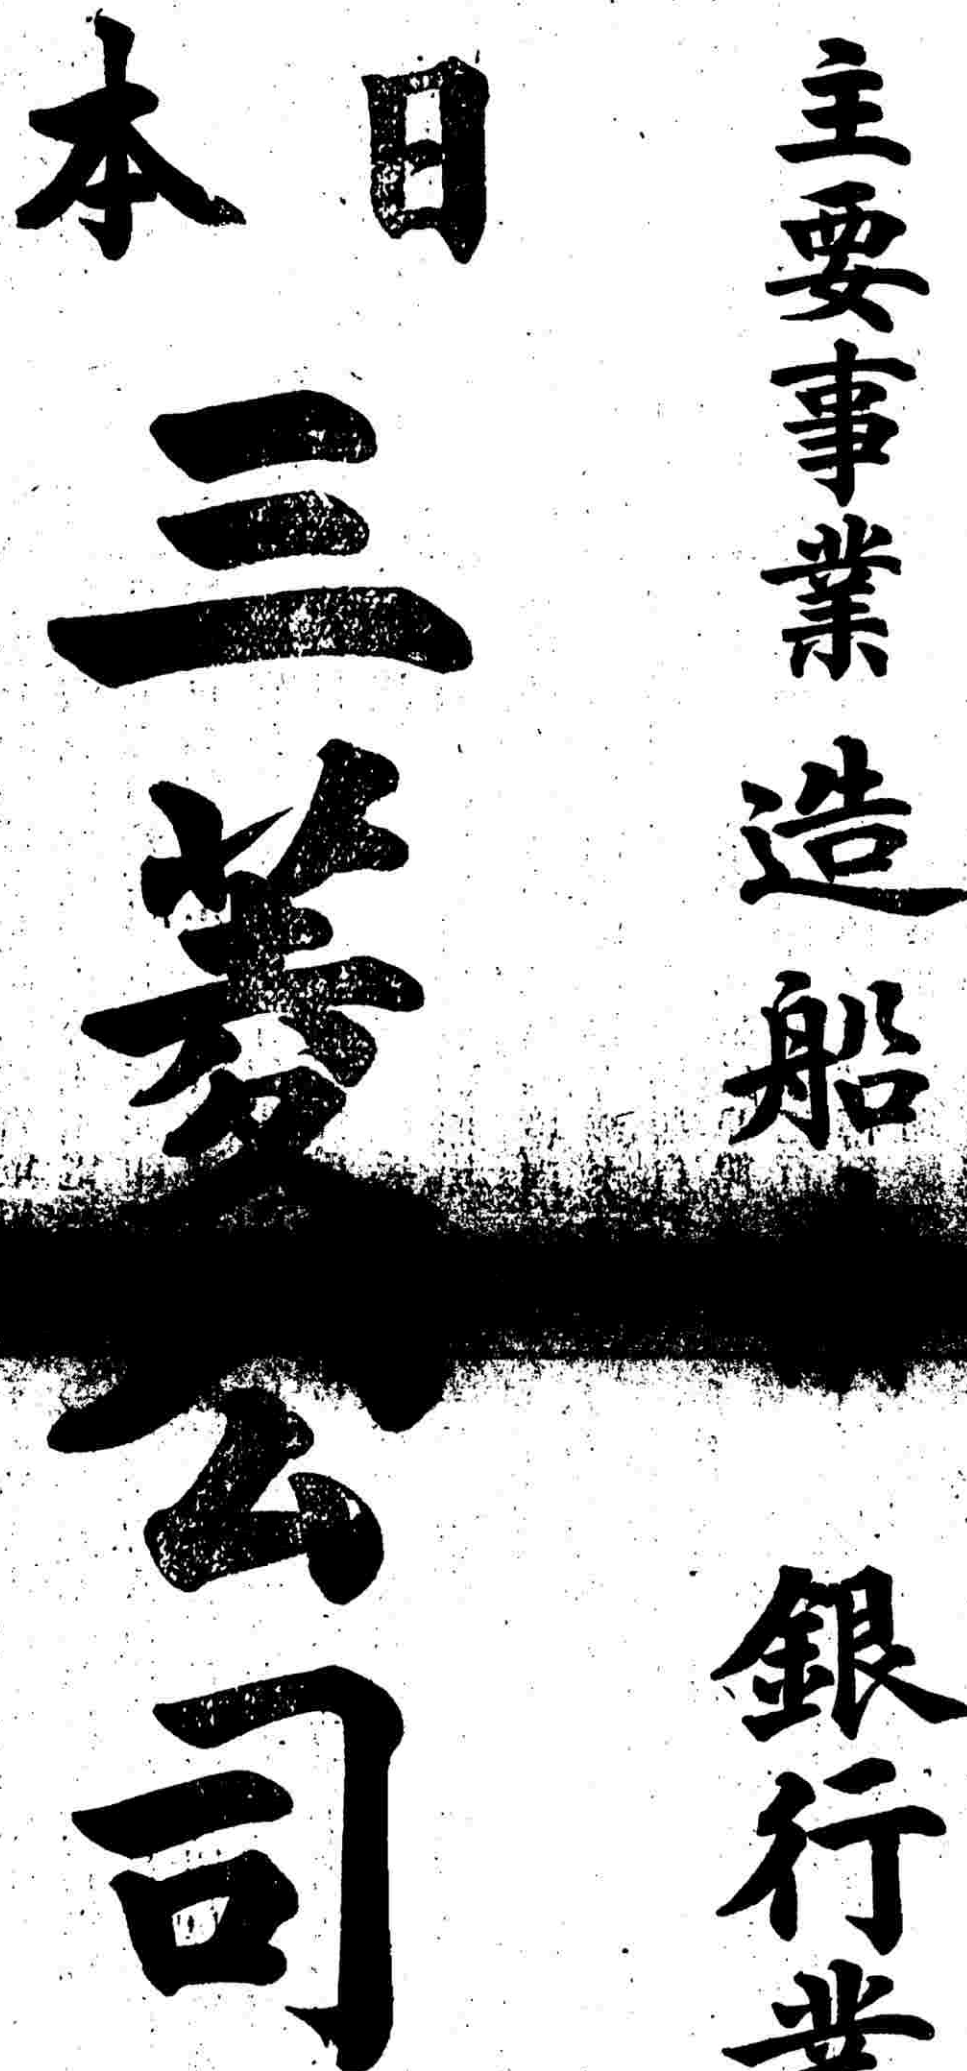 主要事業 造船 銀行業
日本
三菱公司